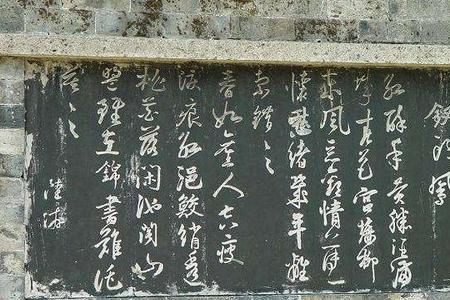 釵頭鳳
紅酥手黃縢酒滿
城春色宮墻柳
東風惡歡情薄一
懷愁緒幾年離
索錯々々
春如舊人空瘦
淚痕紅浥鮫綃透
桃花落閑池閣山
盟雖在錦書難托
莫々々
陸游